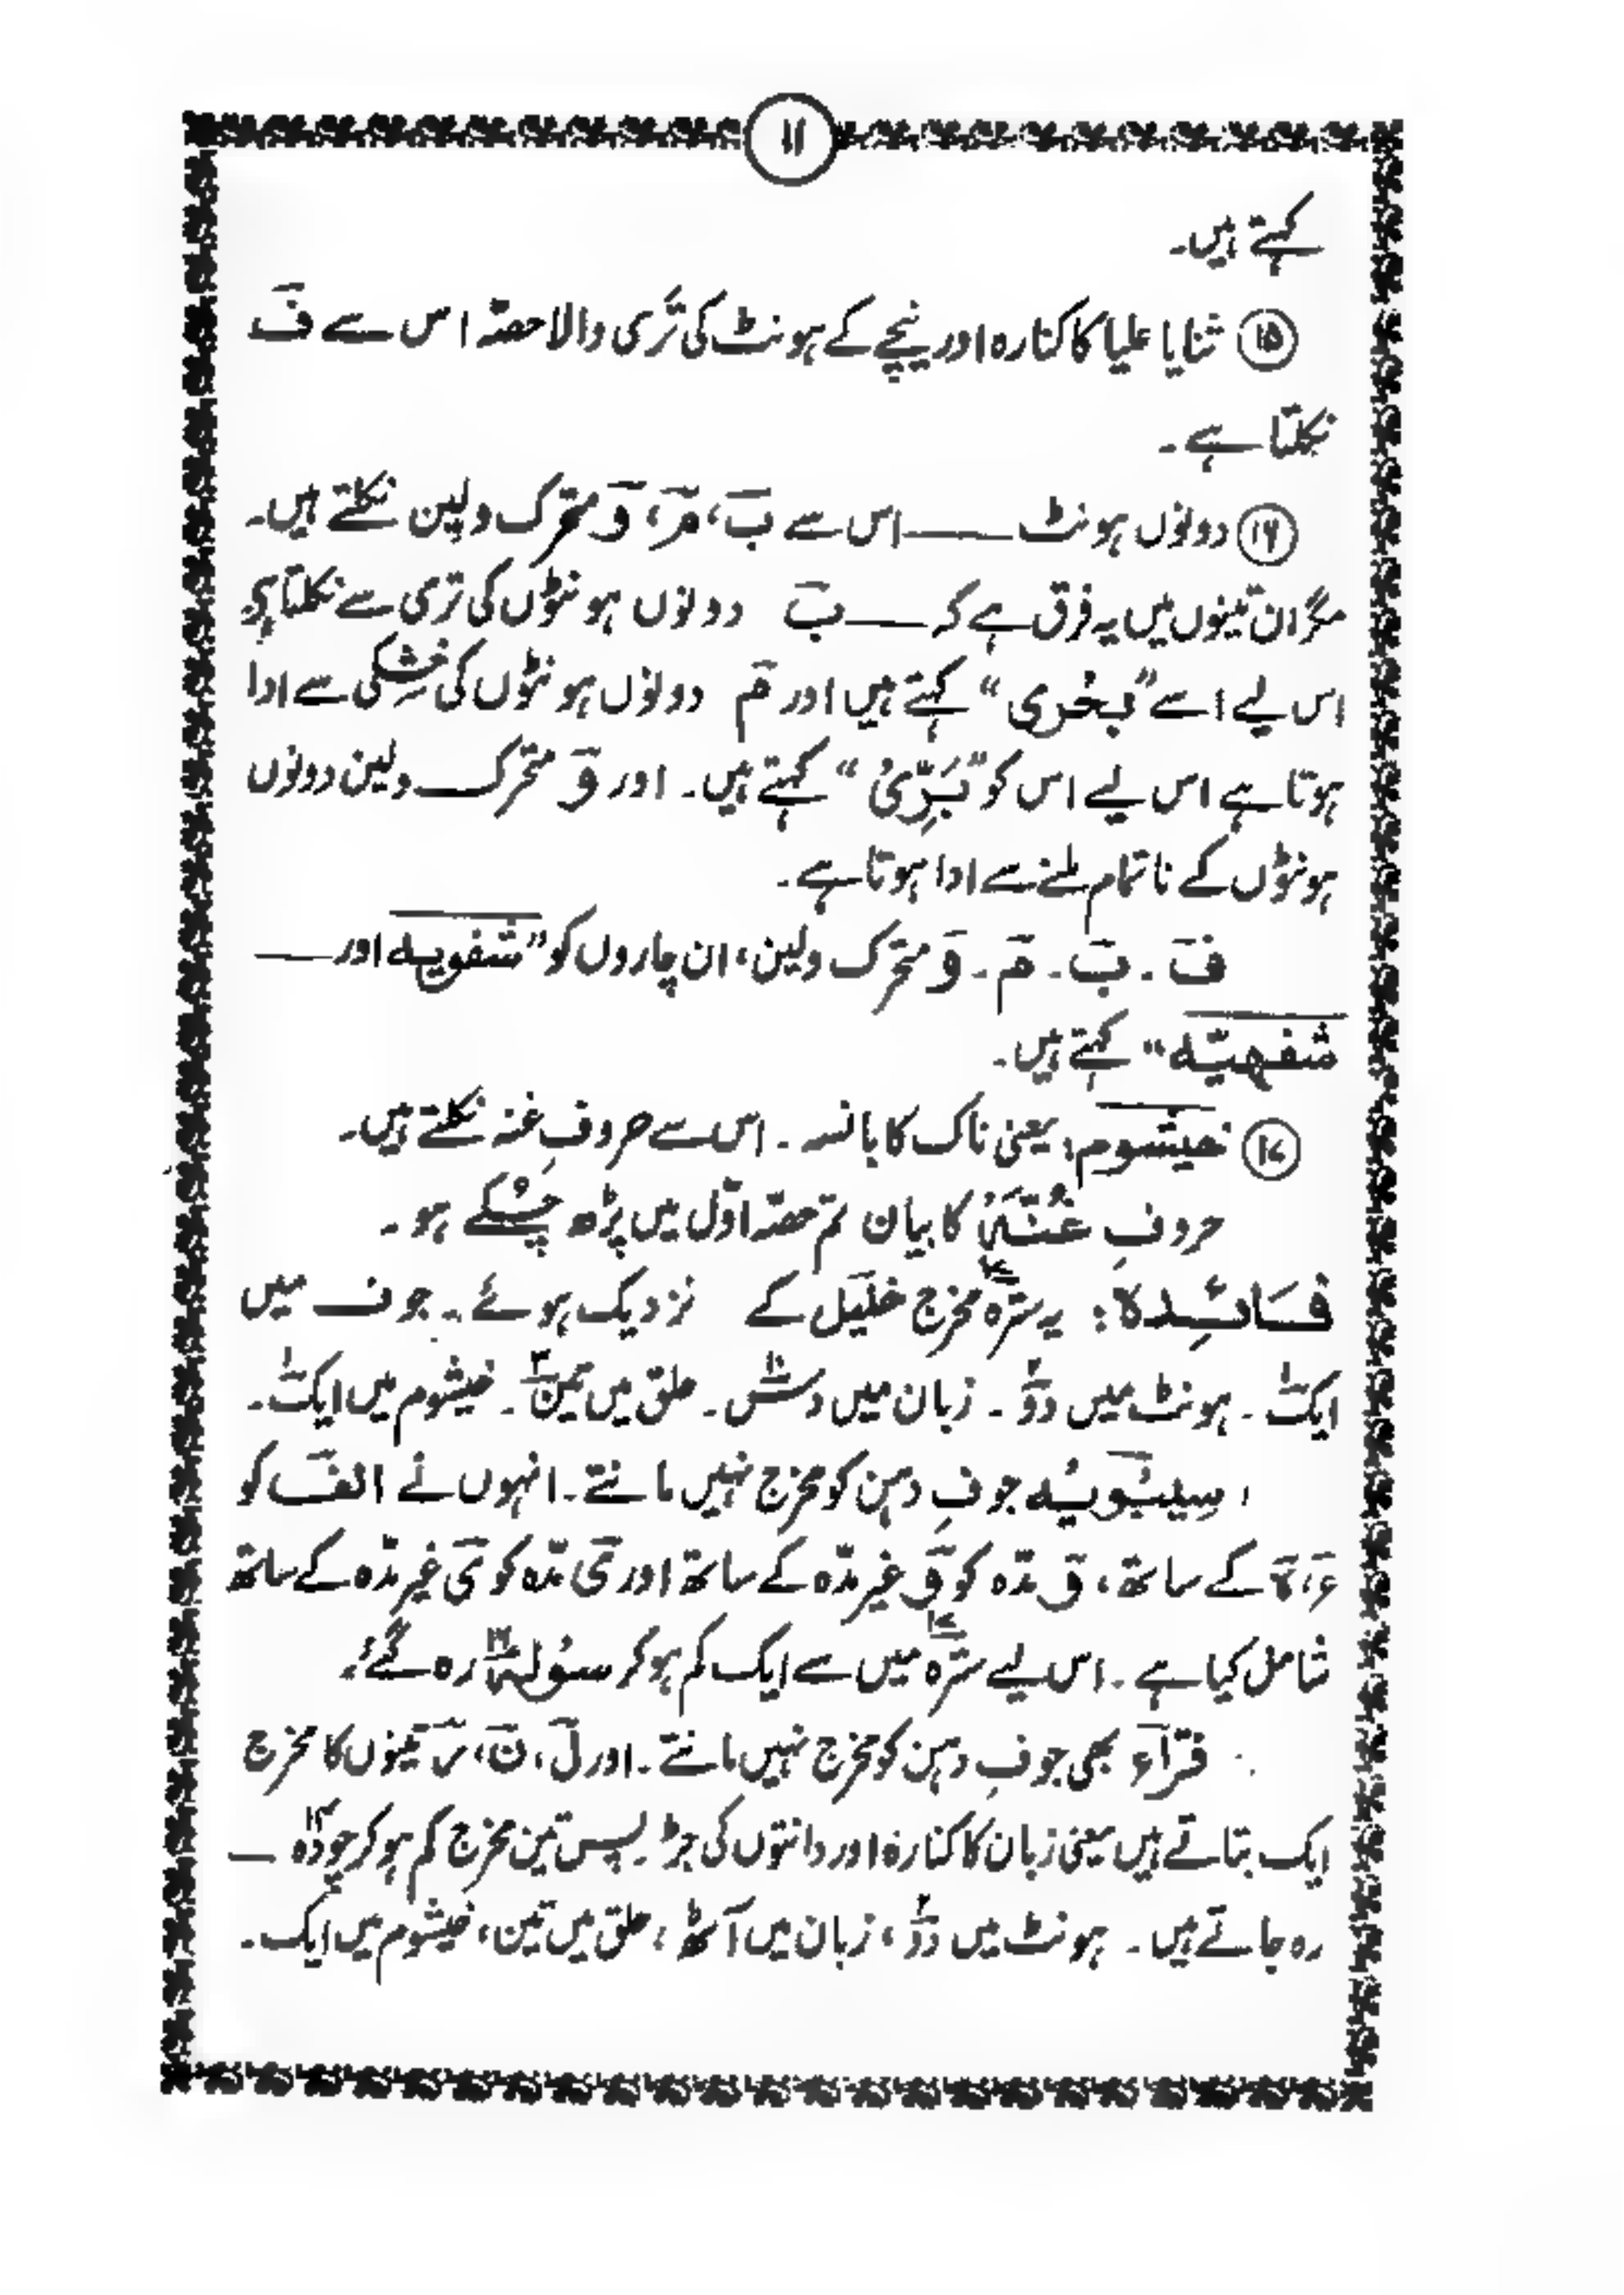 ۱۱
کہتے ہیں۔
۱۵ ثنایا علیا کا کنارہ اور نیچے کے ہونٹ کی تَری والا حصّہ اس سے فؔ
نکلتا ہے۔
۱۶ دونوں ہونٹ ــــ اس سے بؔ، مؔ، وؔ متحرک و لین نکلتے ہیں۔
مگر ان تینوں میں یہ فرق ہے کہ ــــ بؔ دونوں ہونٹوں کی تری سے نکلتا ہے
اس لیے اسے "بحری" کہتے ہیں اور مؔ دونوں ہونٹوں کی خشکی سے ادا
ہوتا ہے اس لیے اس کو "بَرِّیْ" کہتے ہیں۔ اور وؔ متحرک و لین دونوں
ہونٹوں کے ناتمام ملنے سے ادا ہوتا ہے۔
فؔ۔ بؔ۔ مؔ۔ وؔ متحرک ولین، ان چاروں کو "شفویہ اور ــــ
شفہیّہ" کہتے ہیں۔
۱۷ خیشوم: یعنی ناک کا بانسہ۔ اس سے حروفِ غنہ نکلتے ہیں۔
حروفِ غُنَّہ کا بیان تم حصّہ اوّل میں پڑھ چُکے ہو۔
فَائِدہ: یہ سترہ۱۷ مخرج خلیل کے نزدیک ہوئے۔ جوف میں
ایک۱۔ ہونٹ میں دو۲۔ زبان میں دس۱۰۔ حلق میں تین۳۔ خیشوم میں ایک۱۔
سیبُویہ جوفِ دہن کو مخرج نہیں مانتے۔ انہوں نے الفؔ کو
ءؔ، ہؔ کے ساتھ، وؔ مدّہ کو وؔ غیر مدّہ کے ساتھ اور یؔ مدّہ کو یؔ غیر مدّہ کے ساتھ
شامل کیا ہے۔ اس لیے سترہ۱۷ میں سے ایک کم ہو کر سولہ۱۶ رہ گئے۔
فرّاء بھی جوفِ دہن کو مخرج نہیں مانتے۔ اور لؔ، نؔ، رؔ تینوں کا مخرج
ایک بتاتے ہیں یعنی زبان کا کنارہ اور دانتوں کی جڑ پس تین مخرج کم ہو کر چودہ۱۴ ــ
رہ جاتے ہیں۔ ہونٹ میں دو۲، زبان میں آٹھ، حلق میں تین، خیشوم میں ایک۔